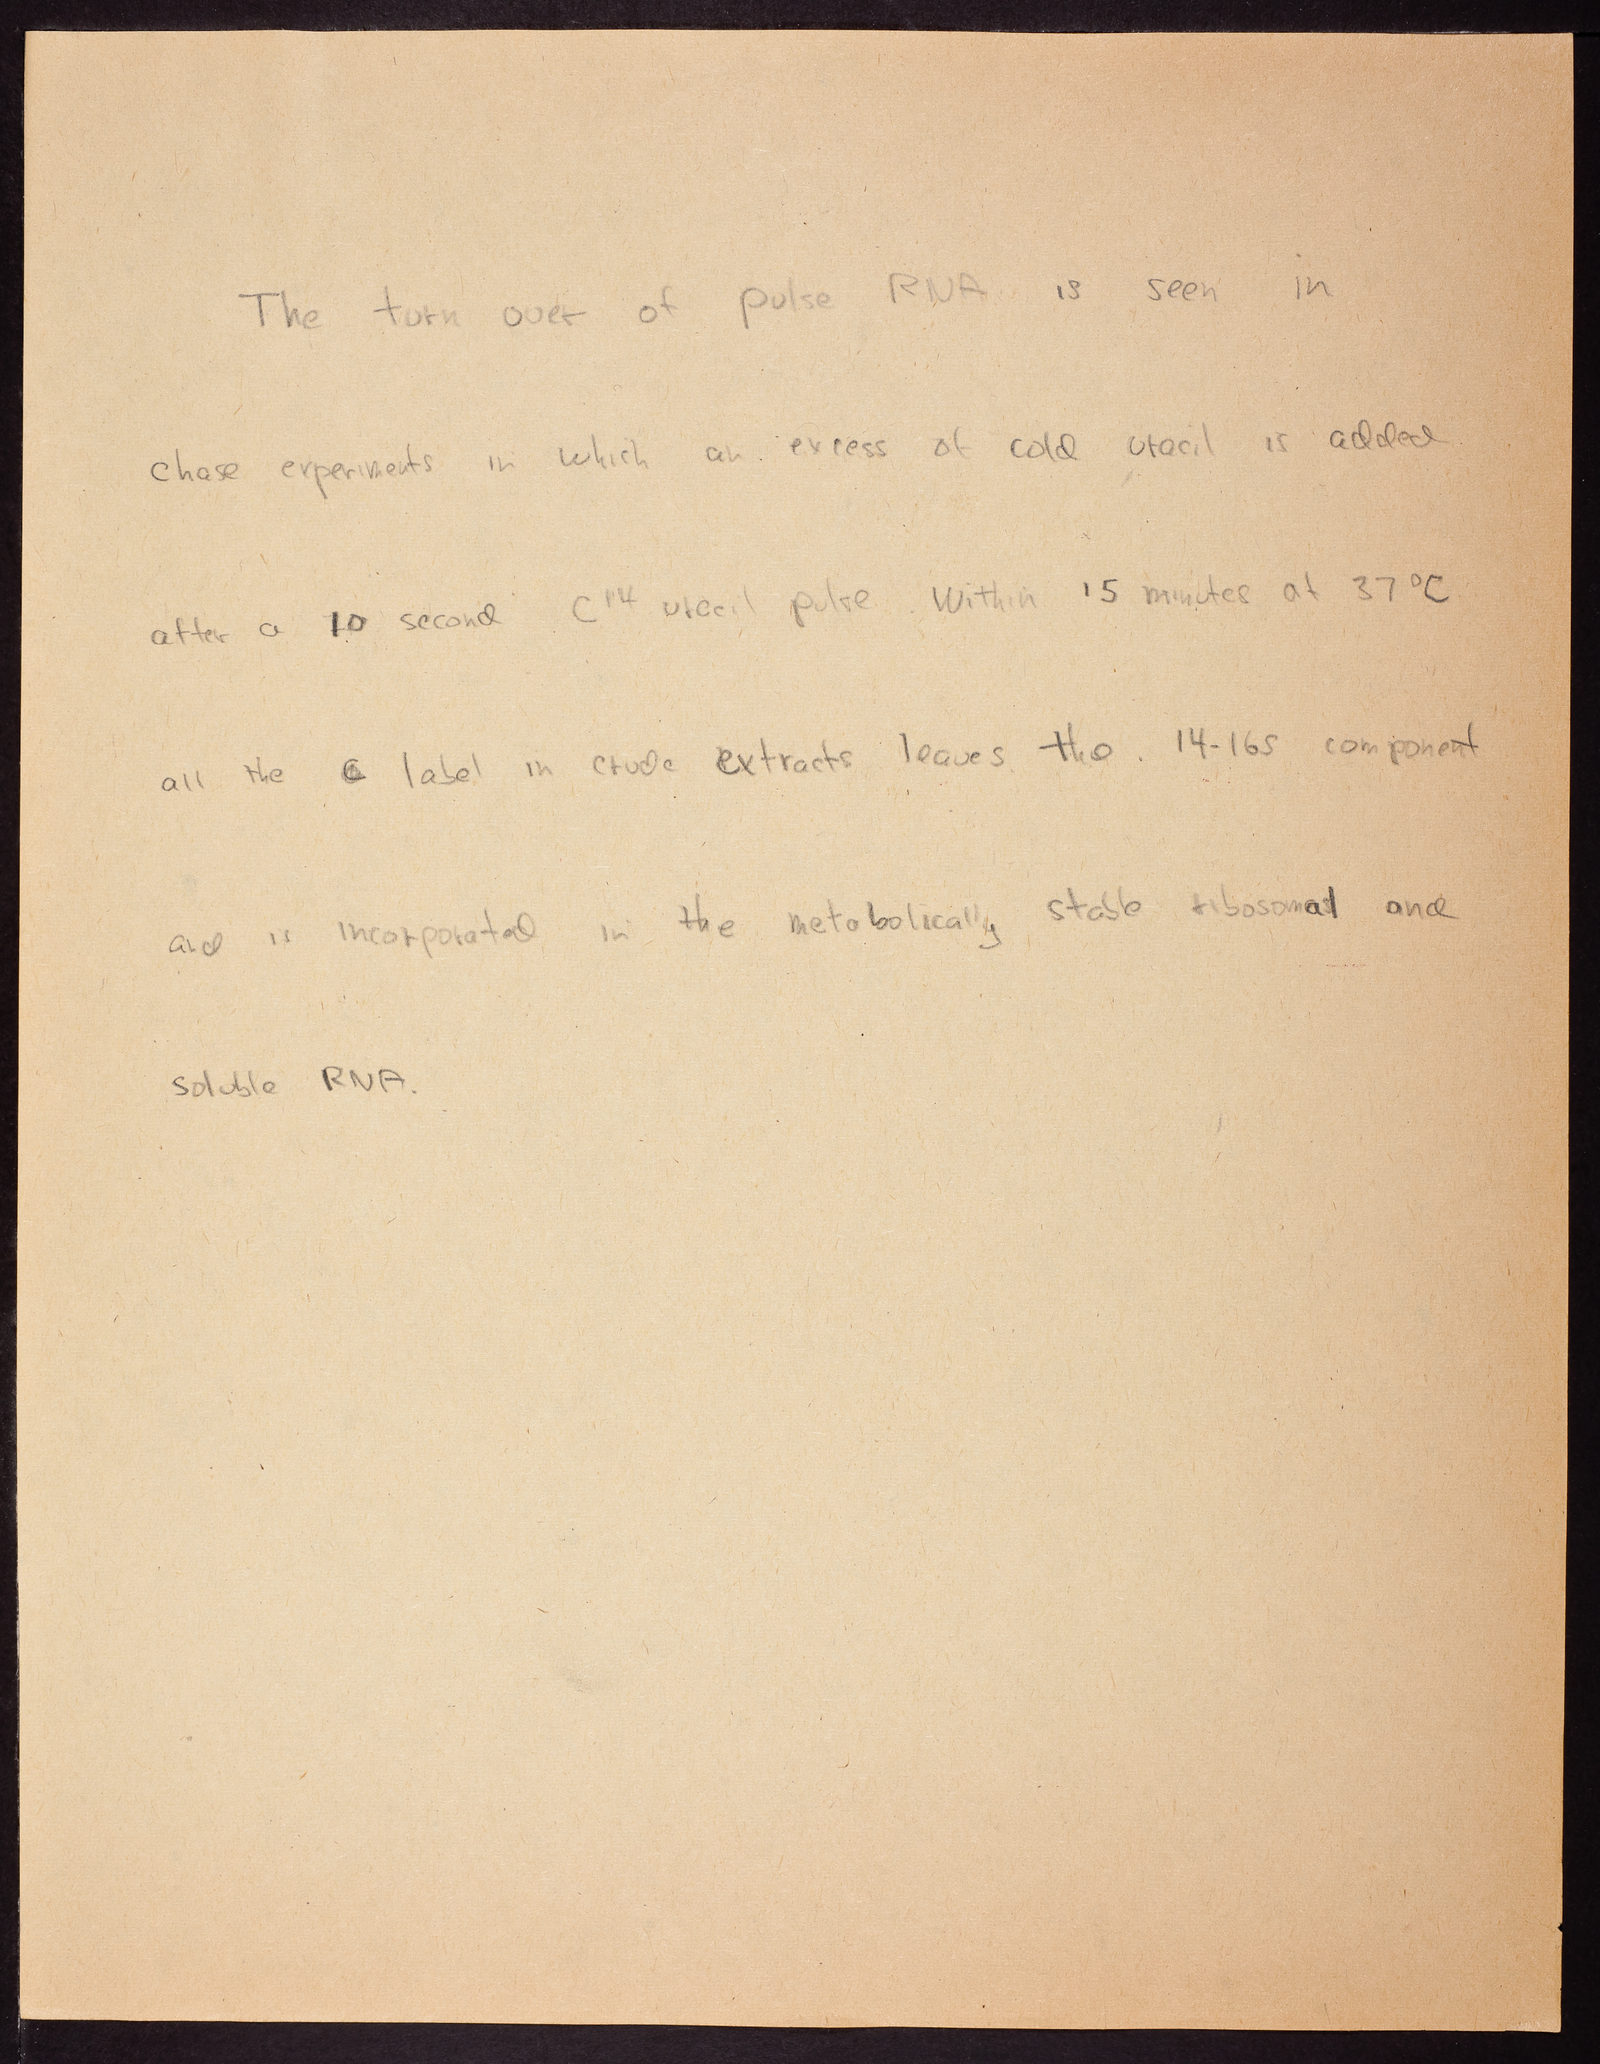 The turn over of pulse RNA is seen in
chase experiments in which an excess of cold uracil is added
after a 10 second C¹⁴ uracil pulse. Within 15 minutes at 37°C
all the C label in crude extracts leaves the 14-16s component
and is incorporated in the metabolically stable ribosomal and
soluble RNA.